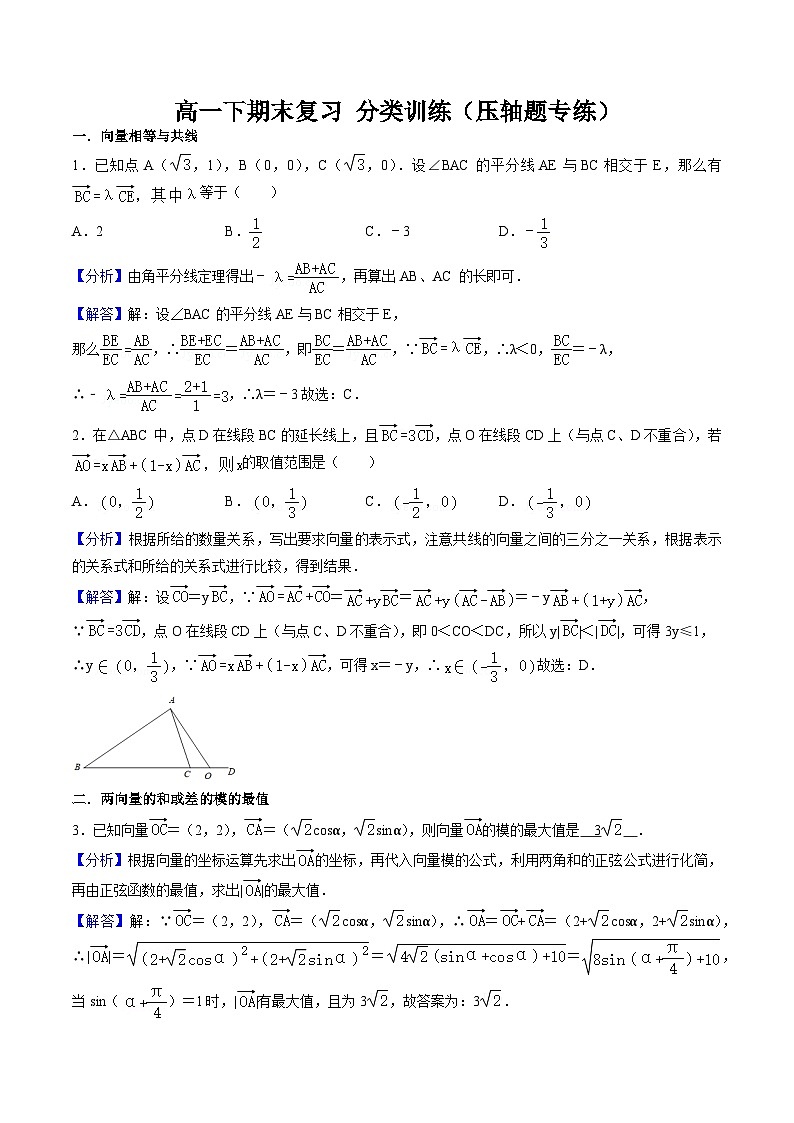 高一下期末复习 分类训练（压轴题专练）
一．向量相等与共线
1．已知点 A（√3，1），B（0，0），C（√3，0）．设∠BAC 的平分线 AE 与 BC 相交于 E，那么有
\overrightarrow{BC}=λ\overrightarrow{CE}，其中λ等于（　　）
A．2　　B．\frac{1}{2}　　C．﹣3　　D．﹣\frac{1}{3}
【分析】由角平分线定理得出﹣λ=\frac{AB+AC}{AC}，再算出 AB、AC 的长即可．
【解答】解：设∠BAC 的平分线 AE 与 BC 相交于 E，
那么\frac{BE}{EC}=\frac{AB}{AC}，∴\frac{BE+EC}{EC}=\frac{AB+AC}{AC}，即\frac{BC}{EC}=\frac{AB+AC}{AC}，∵\overrightarrow{BC}=λ\overrightarrow{CE}，∴λ＜0，\frac{BC}{EC}=﹣λ，
∴﹣λ=\frac{AB+AC}{AC}=\frac{2+1}{1}=3，∴λ＝﹣3 故选：C．
2．在△ABC 中，点 D 在线段 BC 的延长线上，且\overrightarrow{BC}=3\overrightarrow{CD}，点 O 在线段 CD 上（与点 C、D 不重合），若
\overrightarrow{AO}=x\overrightarrow{AB}+(1-x)\overrightarrow{AC}，则 x的取值范围是（　　）
A．(0，\frac{1}{2})　　B．(0，\frac{1}{3})　　C．(-\frac{1}{2}，0)　　D．(-\frac{1}{3}，0)
【分析】根据所给的数量关系，写出要求向量的表示式，注意共线的向量之间的三分之一关系，根据表示
的关系式和所给的关系式进行比较，得到结果．
【解答】解：设\overrightarrow{CO}=y\overrightarrow{BC}，∵\overrightarrow{AO}=\overrightarrow{AC}+\overrightarrow{CO}=\overrightarrow{AC}+y\overrightarrow{BC}=\overrightarrow{AC}+y(\overrightarrow{AC}-\overrightarrow{AB})=﹣y\overrightarrow{AB}+(1+y)\overrightarrow{AC}，
∵\overrightarrow{BC}=3\overrightarrow{CD}，点 O 在线段 CD 上（与点 C、D 不重合），即 0＜CO＜DC，所以 y|\overrightarrow{BC}|＜|\overrightarrow{DC}|，可得 3y≤1，
∴y∈(0，\frac{1}{3})，∵\overrightarrow{AO}=x\overrightarrow{AB}+(1-x)\overrightarrow{AC}，可得 x＝﹣y，∴x∈(-\frac{1}{3}，0)故选：D．
A
B C O D
二．两向量的和或差的模的最值
3．已知向量\overrightarrow{OC}=（2，2），\overrightarrow{CA}=（√2cosα，√2sinα），则向量\overrightarrow{OA}的模的最大值是 3√2 ．
【分析】根据向量的坐标运算先求出\overrightarrow{OA}的坐标，再代入向量模的公式，利用两角和的正弦公式进行化简，
再由正弦函数的最值，求出|\overrightarrow{OA}|的最大值．
【解答】解：∵\overrightarrow{OC}=（2，2），\overrightarrow{CA}=（√2cosα，√2sinα），∴\overrightarrow{OA}=\overrightarrow{OC}+\overrightarrow{CA}=（2+√2cosα，2+√2sinα），
∴|\overrightarrow{OA}|=\sqrt{(2+√2cosα)^2+(2+√2sinα)^2}=\sqrt{4√2(sinα+cosα)+10}=\sqrt{8sin(α+\frac{π}{4})+10}，
当 sin（α+\frac{π}{4}）＝1 时，|\overrightarrow{OA}|有最大值，且为 3√2，故答案为：3√2．